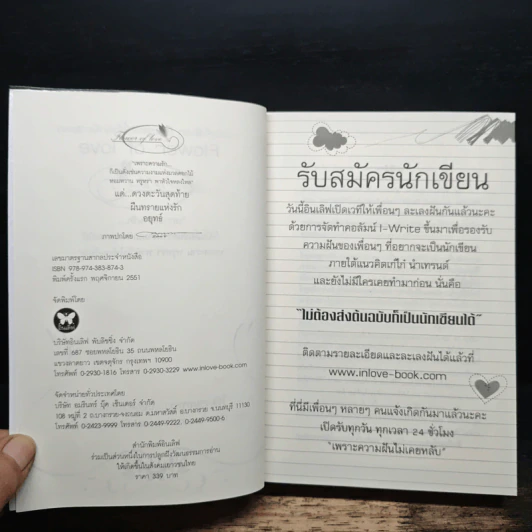 Flower of love
"เพราะความรัก...
ก็เป็นดั่งเช่นความงามแห่งมวลดอกไม้
หอมหวาน หรูหรา พาหัวใจหลงใหล"
แด่...ดวงตะวันสุดท้าย
ผืนทรายแห่งรัก
อยุทธ์
ภาพปกโดย
เลขมาตรฐานสากลประจำหนังสือ
ISBN 978-974-383-874-3
พิมพ์ครั้งแรก พฤศจิกายน 2551
จัดพิมพ์โดย
อินเลิฟ
บริษัทอินเลิฟ พับลิชชิ่ง จำกัด
เลขที่ 687 ซอยพหลโยธิน 35 ถนนพหลโยธิน
แขวงลาดยาว เขตจตุจักร กรุงเทพฯ 10900
โทรศัพท์ 0-2930-1816 โทรสาร 0-2930-3229 www.inlove-book.com
จัดจำหน่ายทั่วประเทศโดย
บริษัท อมรินทร์ บุ๊ค เซ็นเตอร์ จำกัด
108 หมู่ที่ 2 ถ.บางกรวย-จงถนอม ต.มหาสวัสดิ์ อ.บางกรวย จ.นนทบุรี 11130
โทรศัพท์ 0-2423-9999 โทรสาร 0-2449-9222, 0-2449-9500-6
สำนักพิมพ์อินเลิฟ
ร่วมเป็นส่วนหนึ่งในการปลูกฝังวัฒนธรรมการอ่าน
ให้เกิดขึ้นในสังคมเยาวชนไทย
ราคา 339 บาท
รับสมัครนักเขียน
วันนี้อินเลิฟเปิดเวทีให้เพื่อนๆ ละเลงฝันกันแล้วนะคะ
ด้วยการจัดทำคอลัมน์ I-Write ขึ้นมาเพื่อรองรับ
ความฝันของเพื่อนๆ ที่อยากจะเป็นนักเขียน
ภายใต้แนวคิดเก๋ไก๋ นำเทรนด์
และยังไม่มีใครเคยทำมาก่อน นั่นคือ
"ไม่ต้องส่งต้นฉบับก็เป็นนักเขียนได้"
ติดตามรายละเอียดและละเลงฝันได้แล้วที่
www.inlove-book.com
ที่นี่มีเพื่อนๆ หลายๆ คนแจ้งเกิดกันมาแล้วนะคะ
เปิดรับทุกวัน ทุกเวลา 24 ชั่วโมง
"เพราะความฝันไม่เคยหลับ"